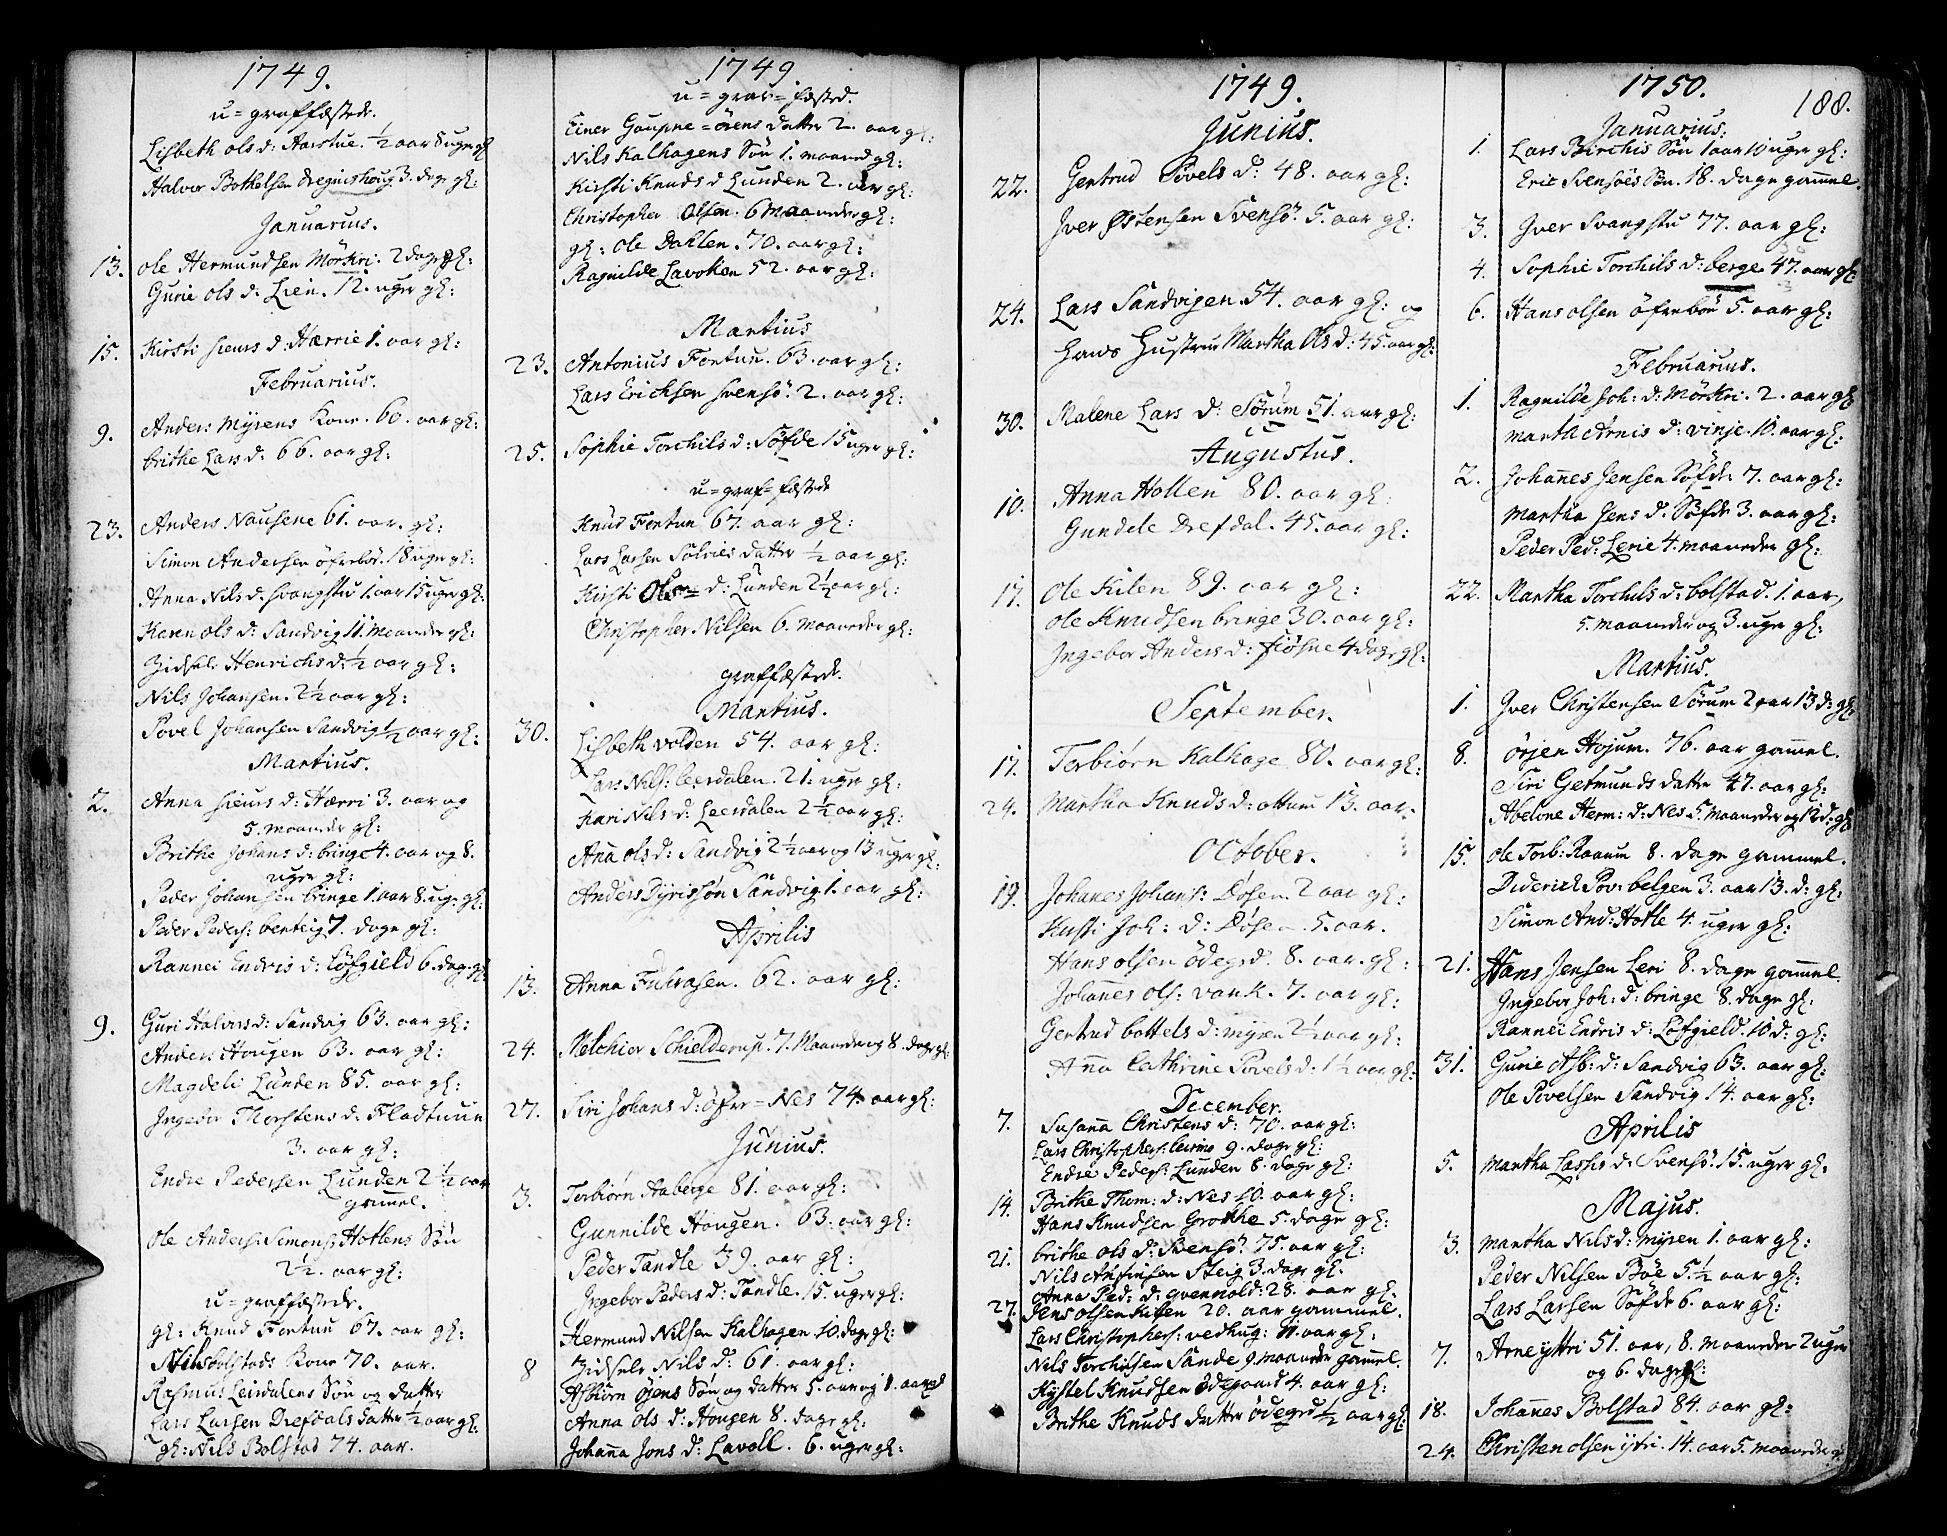 1749.
u=graffæstede.
Lisbeth ols d: Harstue. ½ aar 8 uger gl
Halvor Bottelsen 3. dage gl:
Januarius.
13. ole Hermundsen Mörkri. 2 dage gl:
Gurie ols d: Lien. 12. uger gl:
15. Kirsti Siurs d: Hærrie 1. aar gl:
Februarius.
9. Anders Myrens Kone. 60. aar gl:
brithe Lars d: 66. aar gl:
23. Anders Nausene 61. aar. gl:
Simon Andersen öfrebö. 18 uger gl:
Anna Nils d: Svangstu 1. aar 15 uger gl:
Karen ols d: Sandvig 11. maaneder gl:
Zidsele Henrichs d: ½ aar gl:
Nils Johansen. 2½ aar gl:
Povel Johansen Sandvig ½ aar gl:
Martius.
2. Anna Siurs d: Hærri 3. aar og
5. maaneder gl:
Brithe Johans d: bringe 4. aar og 8.
uger gl:
Peder Johansen bringe 1. aar 8. uger gl:
Peder Peders: benteig 7. dage gl:
Rannei Endris d: Löfgield 6. dage gl
9. Guri Halvors d: Sandvig 63. aar gl:
Anders Hougen 63. aar gl:
Magdeli Lunden 85. aar gl:
Ingebor Thorstens d: Fladtunn
3. aar gl:
Endre Pedersen Lunden 2½ aar
gammel.
Ole Anders: Simons: Hotlens Sön
2½. aar gl:
u=graffæstede.
gl: Knud Fortun 67. aar gl:
Nils bolstads Kone 70. aar.
Rasmus Leirdalens Sön og datter
Lars Larsen Drefdals datter ½ aar gl:
gl: Nils Bolstad 74. aar.
1749.
u=grav=fæsted.
Einer Gaupne=örens datter 2. aar gl:
Nils Kalhagens Sön 1. maaned gl:
Kirsti Knuds d Lunden 2. aar gl:
Christopher Olsen. 6 Maaneder gl:
gl: ole Dahlen. 70. aar gl:
Ragnilde Lavoken 52. aar gl:
Martius
23. Antonius Fortun. 63. aar gl:
Lars Erichsen Svensö. 2. aar gl:
25. Sophie Torchils d: Söfde 15 uger gl:
u=graf=fæstede
Knud Fortun 67. aar gl:
Lars Larsen Solvies datter ½ aar gl:
Kirsti Ols= d: Lunden 2½ aar gl:
Christopher Nilsen 6. maaneder gl:
graffæstede.
Martius.
30. Lisbeth volden 54. aar gl:
Lars Nils: leerdalen. 21. uger gl:
Kari Nils d: Leerdalen 2½ aar gl:
Anna ols d: Sandvig 2½ aar og 13 uger gl:
Anders Dyrissön Sandvig 1. aar gl:
Aprilis
13. Anna Fuhrasen. 62. aar gl:
24. Melchior Schielderup. 7. Maaneder og 8. dage gl:
27. Siri Johans d: öfre=Nes 74. aar gl:
Junius.
3. Torbiörn Aaberge 81. aar gl:
Gunnilde Hougen. 63. aar gl:
Peder Tandle 39. aar gl:
Ingebor Peders d: Tandle. 15. uger gl:
Hermund Nilsen Kalhagen 10. dage gl:
8 Zidsele Nils d: 61. aar gl:
Asbiörn öyens Sön og datter 5. aar og 1. aar
Anna ols d: Hougen 8. dage gl:
Johanna Jons d: Lavoll. 6. uger gl:
1749.
Junius.
22. Gertrud Povels d: 48. aar gl:
Iver Østensen Svensö. 5. aar gl:
24. Lars Sandvigen 54. aar gl: og
Hans Hustrue Martha Ols d: 45. aar gl:
30. Malene Lars d: Sørum 51. aar gl:
Augustus.
10. Anna Hollen 80. aar gl:
Gundele Drefdal. 45. aar gl:
17. Ole Kilen 89. aar gl:
ole Knudsen bringe 30. aar gl:
Ingebor Anders d: fiøsne 4 dage gl:
September.
17. Torbiörn Kalhage 80. aar gl:
24. Martha Knuds d: ottum 13. aar.
October.
19. Johanes Johans: Døsen. 2 aar gl:
Kirsti Joh: d: Døsen. 5. aar.
Hans olsen ödegrd. 8. aar. gl:
Johannes ols: vank. 7. aar gl:
Gertrud bottels d: myren 2½ aar gl:
Anna Cathrine Povels d: 1½ aar gl:
December.
7. Susanna Christens d: 70. aar gl:
Lars Christophers: leirmo 9. dage gl:
Endre Peders: Lunden 8. dage gl:
14. Brithe Thom: d: Nes 10. aar gl:
Hans Knudsen Grothe 5. dage gl:
21. brithe ols d: Svensö. 75. aar gl:
Nils Steig 3. dage gl.
Anna Ped: d: qvennold: 28. aar gl:
27. Jens olsen Kilen 20. aar gammel.
Lars Christophers: vedhug: 11. aar gl:
Nils Torchilsen Sande 9. maaneder gammel.
Kystel Knudsen ödegaard 4. aar gl:
Brithe Knuds datter ödegrd ½ aar gl:
1750.
188.
Januarius.
1. Lars Birchis Sön 1 aar 10 uger gl:
Eric Svensöes Sön. 18. dage gammel.
3. Iver Svangstu 77. aar gl:
4. Sophie Torchils d: berge. 47. aar gl:
6. Hans olsen öfrebön 5. aar gl:
Februarius.
1. Ragnilde Joh: d: Mörkri. 2. aar gl
martha Arnis d: vinje. 10. aar gl:
2. Johannes Jensen Söfde 7. aar gl:
Martha Jens d. Söfde 3. aar gl:
Peder Ped: Lerie 4. maaneder gl:
22. Martha Torchils d: bolstad. 1. aar,
5. maaneder og 3. uger gl:
Martius.
1. Iver Christensen Sörum 2 aar 13 d: gl:
8. örjen Hojum. 76. aar gammel.
Siri Getmunds datter 47. aar gl:
Abelone Herm: d: Nes 5. maaneder og 12 d: gl
15. ole Torb: Raaum 8. dage gammel.
Diderich Pov: belgen 3. aar 13. d: gl:
Simon And: Hotle 4. uger gl:
21. Hans Jensen Leri 8. dage gammel
Ingebor Joh: d: bringe 8. dage gl:
Rannei Endris d: Löfgield. 10. d: gl:
31. Gurie Asb: d: Sandvig 63. aar gl:
Ole Povelsen Sandvig 14. aar gl:
Aprilis
5. martha Lasses d: Svensö. 15. uger gl:
Majus.
3. martha Nils d: myren 1. aar gl:
Peder Nilsen Böe 5.½ aar gl:
Lars Larsen Söfde 6. aar gl:
7. Arne yttri 51. aar, 8. maaneder 2 uger
og 6. dage gl:
18. Johannes Bolstad 84. aar gl:
24. Christen olsen ytri. 14. aar 5. maaneder